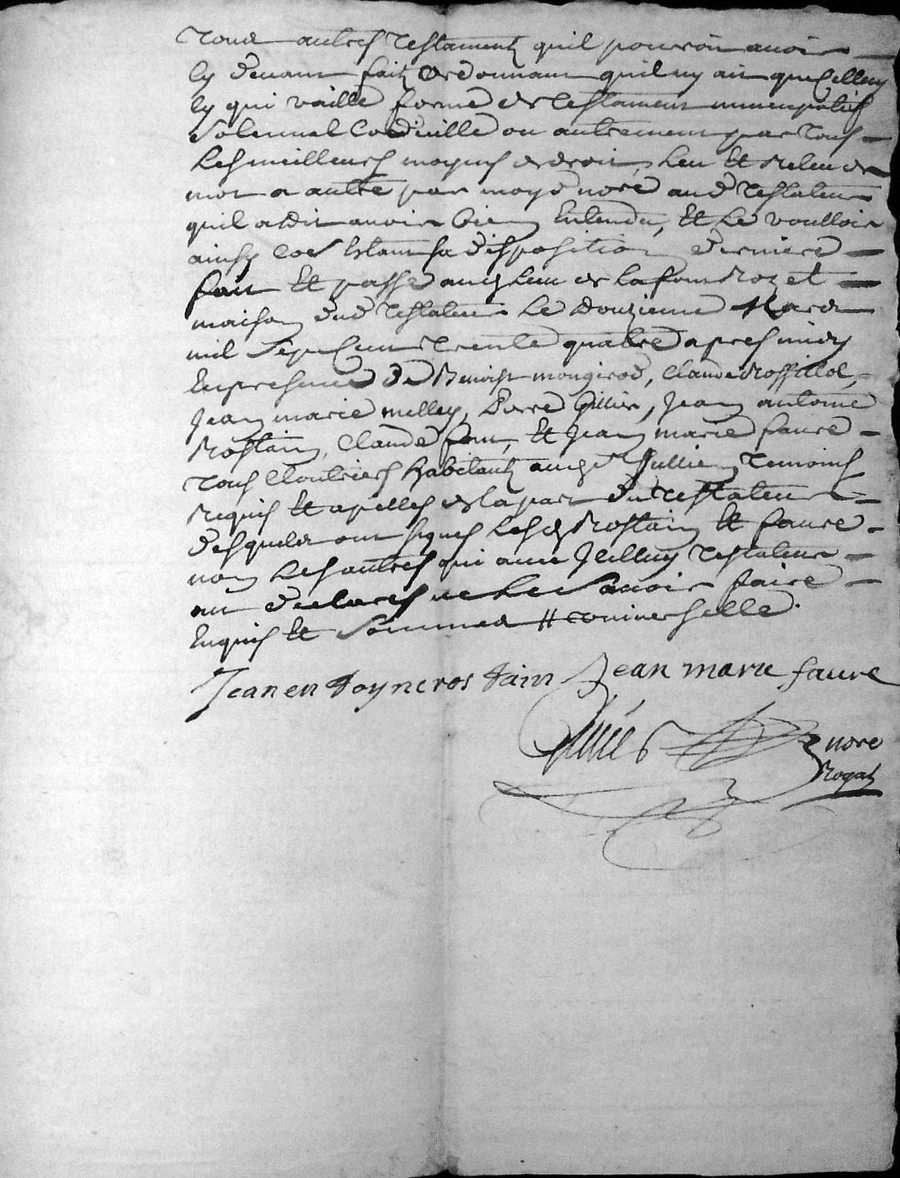 Tous autres Testaments quil pouroit avoir
Cy devant fait Ordonnant quil ny ait que Celluy
Cy qui vaille forme de Testament nuncupatif
Solennel Codicille ou autrement par tous
Les meilleurs moyens de droit, Leu Et Releu de
mot a autre par moyd nore aud Testateur
quil a dit avoir bien Entendu, Et Le voulloir
ainsy Estant sa disposition derniere
fait Et passé aud Lieu de Lafon Rozet
maison dud Testateur Le Douzieme Mars
mil sept Cent Trente quatre apres midy
En presence De Benoist mongirod, Claude
Jean marie melley, Pierre Gillier, Jean antoine
Rostain, Claude four, Et Jean marie faure
Tous Cloutiers habitants aud St Jullien Temoins
Requis Et apelles de La part dud Testateur
desquels ont signes Lesd Rostain Et faure
non Les autres qui avec Icelluy Testateur
ont declares ne Le Scavoir faire
Enquis Et Sommes # universelle.
Jean en toyne ros tain Jean marie faure
nore
Royal